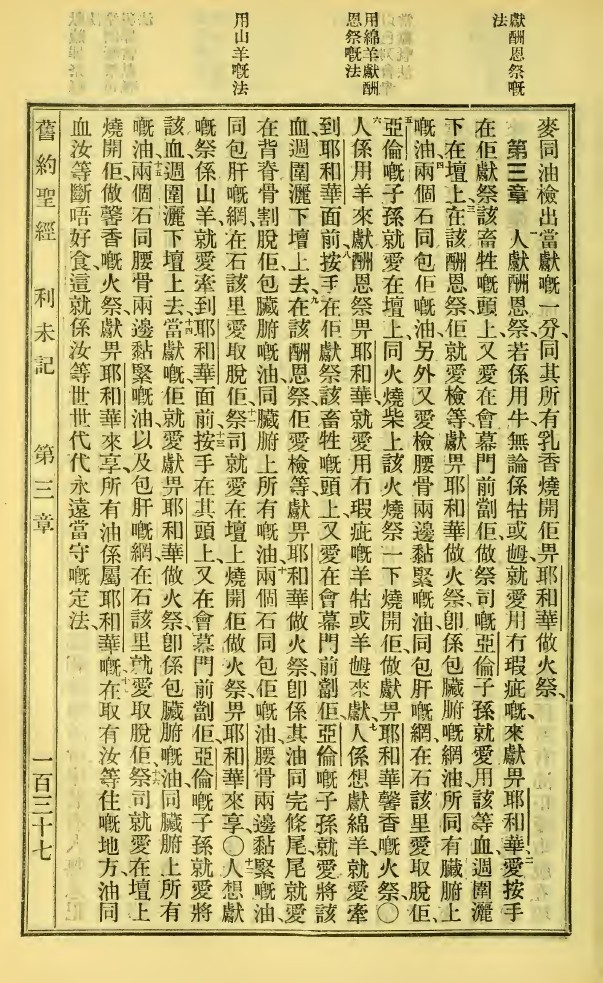 獻酬恩祭嘅
法
用綿羊獻酬
恩祭嘅法
用山羊嘅法
麥同油檢出當獻嘅一分、同其所有乳香燒開佢畀耶和華做火祭、
第三章 一人獻酬恩祭、若係用牛、無論係牯或𡜵、就愛用冇瑕疵嘅、來獻畀耶和華、二愛按手
在佢獻祭該畜牲嘅頭上、又愛在會幕門前劏佢、做祭司嘅亞倫子孫就愛用該等血、週圍灑
下在壇上、三在該酬恩祭佢就愛檢等獻畀耶和華做火祭、卽係包臟腑嘅網油、所同有臟腑上
嘅油、四兩個石同包佢嘅油、另外又愛檢腰骨兩邊黏緊嘅油、同包肝嘅網、在石該里愛取脫佢、
五亞倫嘅子孫就愛在壇上、同火燒柴上該火燒祭一下燒開佢、做獻畀耶和華馨香嘅火祭、〇
六人係用羊來獻酬恩祭畀耶和華、就愛用冇瑕疵嘅羊牯或羊𡜵來獻、七人係想獻綿羊、就愛牽
到耶和華面前、八按手在佢獻祭該畜牲嘅頭上、又愛在會幕門前劏佢、亞倫嘅子孫就愛將該
血、週圍灑下壇上去、九在該酬恩祭佢愛檢等獻畀耶和華做火祭、卽係其油同完條尾、尾就愛
在背脊骨割脫、佢包臟腑嘅油、同臟腑上所有嘅油、十兩個石同包佢嘅油、腰骨兩邊黏緊嘅油、
同包肝嘅網、在石該里愛取脫佢、十一祭司就愛在壇上燒開佢、做火祭畀耶和華來享、〇十二人想獻
嘅祭係山羊、就愛牽到耶和華面前、十三按手在其頭上、又在會幕門前劏佢、亞倫嘅子孫就愛將
該血週圍灑下壇上去、十四當獻嘅佢就愛獻畀耶和華做火祭、卽係包臟腑嘅油、同臟腑上所有
嘅油、十五兩個石同腰骨兩邊黏緊嘅油、以及包肝嘅網、在石該里就愛取脫佢、十六祭司就愛在壇上
燒開佢、做馨香嘅火祭、獻畀耶和華來享、所有油係屬耶和華嘅、十七在取有汝等住嘅地方、油同
血汝等斷唔好食、這就係汝等世世代代永遠當守嘅定法、
舊約聖經 利未記 第三章 一百三十七